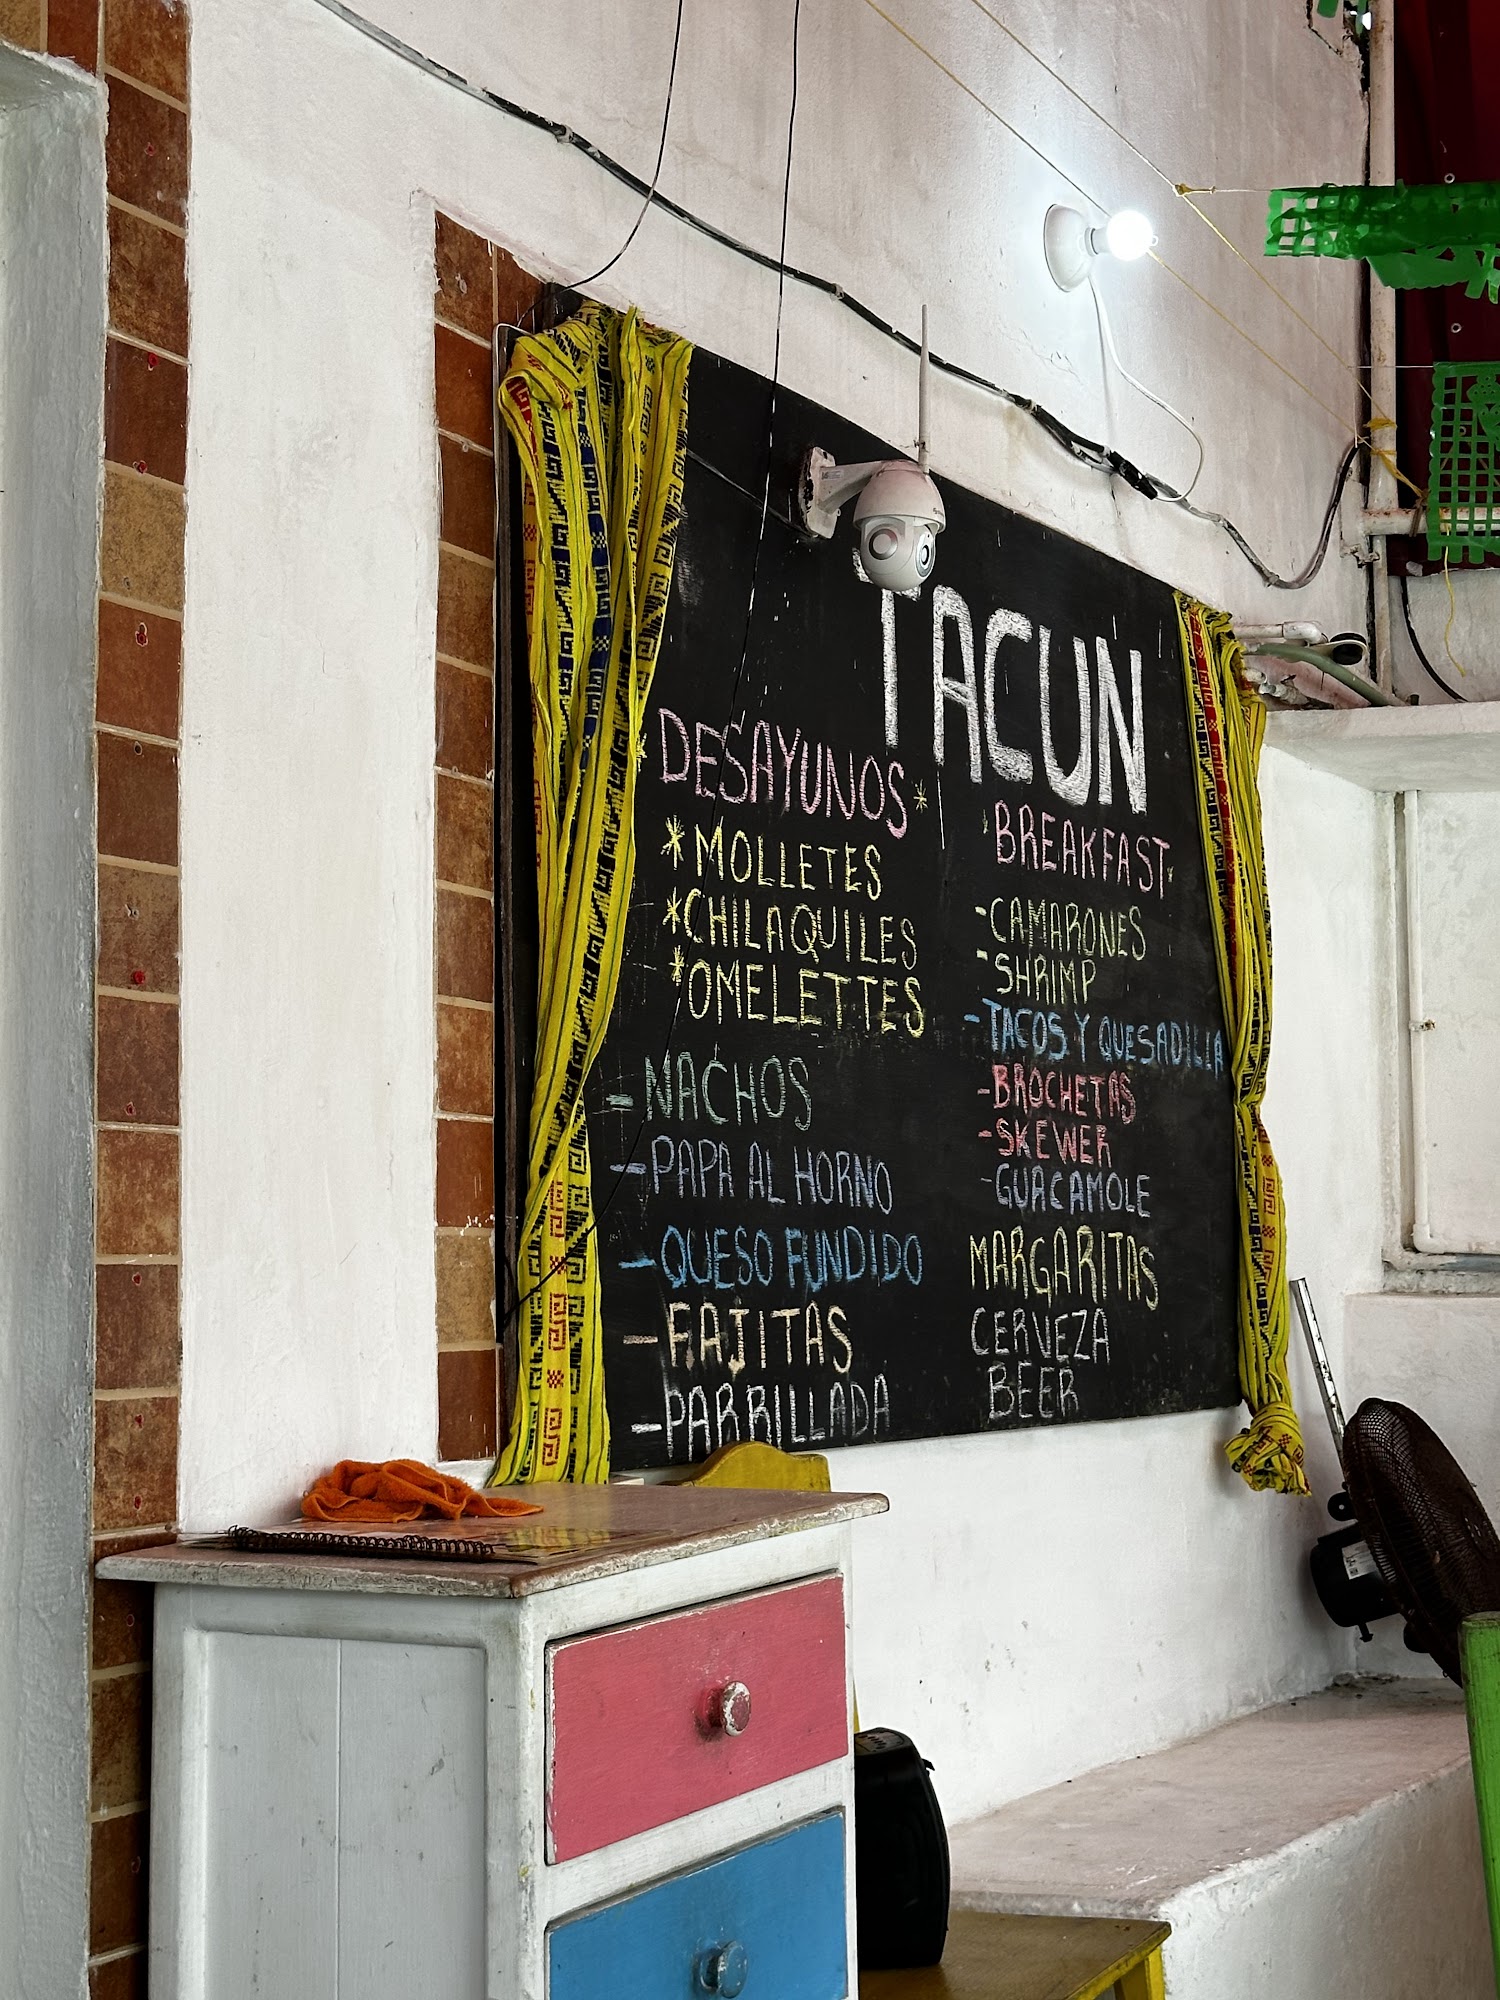 TACUN
DESAYUNOS*
*MOLLETES
*CHILAQUILES
*OMELETTES
-NACHOS
-PAPA AL HORNO
-QUESO FUNDIDO
-FAJITAS
-PARRILLADA
BREAKFAST
-CAMARONES
-SHRIMP
-TACOS Y QUESADILLA
-BROCHETAS
-SKEWER
-GUACAMOLE
MARGARITAS
CERVEZA
BEER